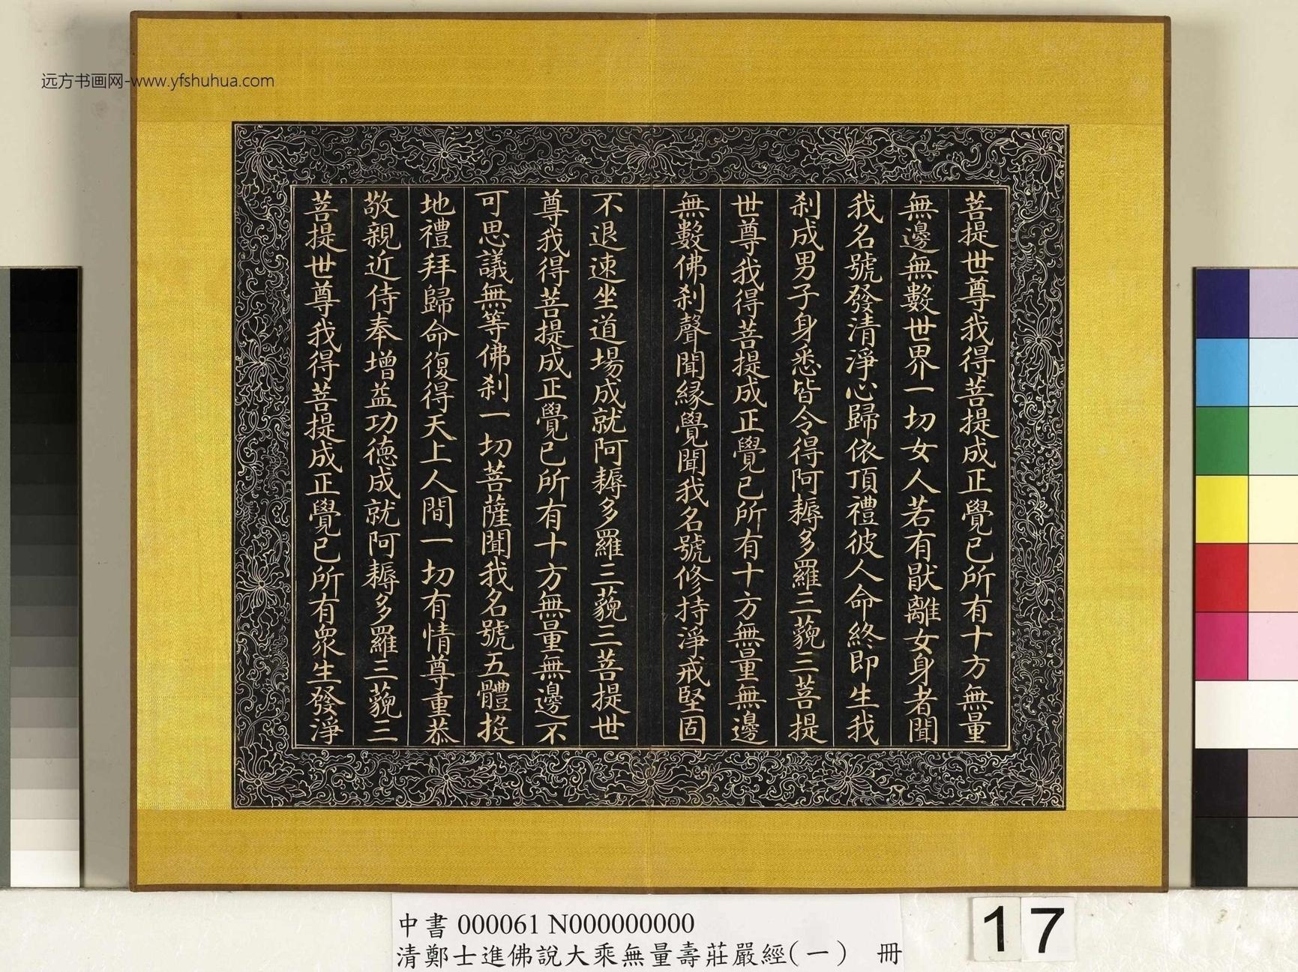 远方书画网-www.yfshuhua.com
菩提世尊我得菩提成正覺已所有十方無量
無邊無數世界一切女人若有猒離女身者聞
我名號發清淨心歸依頂禮彼人命終即生我
刹成男子身悉皆令得阿耨多羅三藐三菩提
世尊我得菩提成正覺已所有十方無量無邊
無數佛刹聲聞緣覺聞我名號修持淨戒堅固
不退速坐道場成就阿耨多羅三藐三菩提世
尊我得菩提成正覺已所有十方無量無邊不
可思議無等佛刹一切菩薩聞我名號五體投
地禮拜歸命復得天上人間一切有情尊重恭
敬親近侍奉增益功德成就阿耨多羅三藐三
菩提世尊我得菩提成正覺已所有眾生發淨
中書 000061 N000000000
清鄭士進佛說大乘無量壽莊嚴經(一) 冊
17